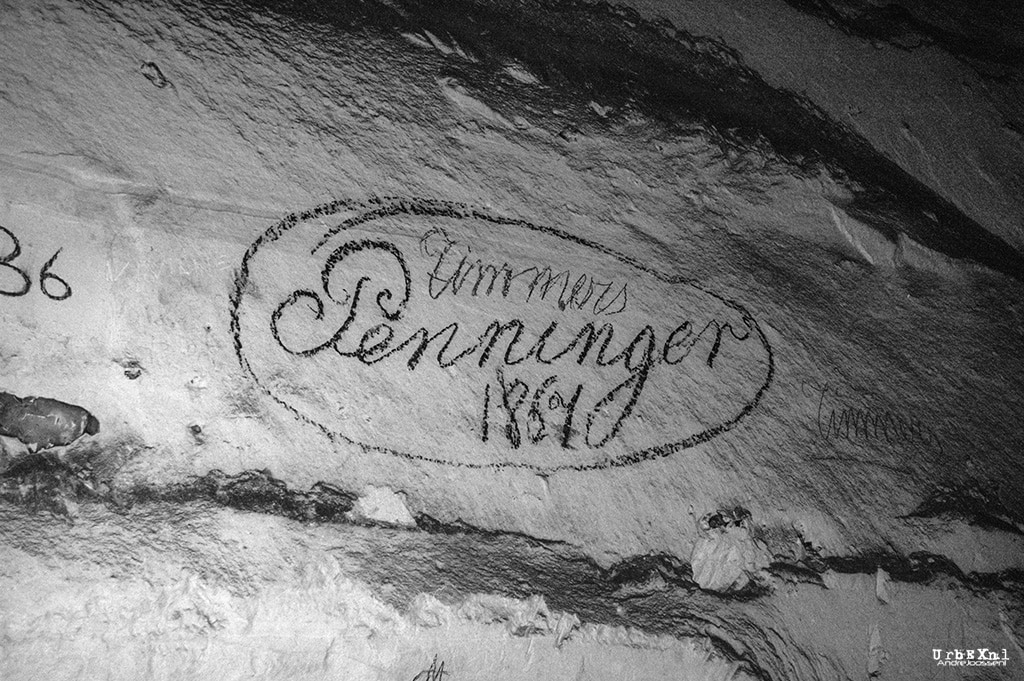 36
Timmers
Penninger
1864
Timmers
M
UrbEXnl
AndreJoossenl